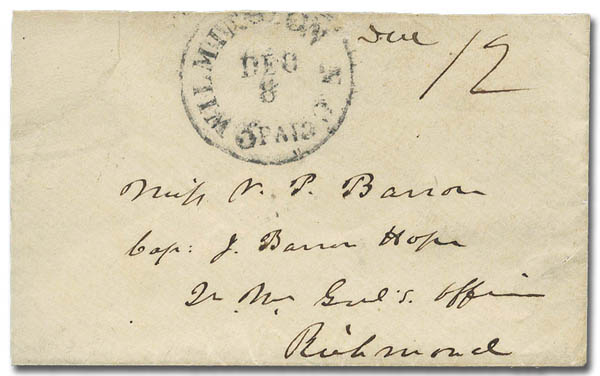 WILMINGTON N.C.
DEC
8
5 PAID
Due 12
Miss V. P. Barron
Cap: J. Barron Hope
Qr Mr Genl's. office
Richmond